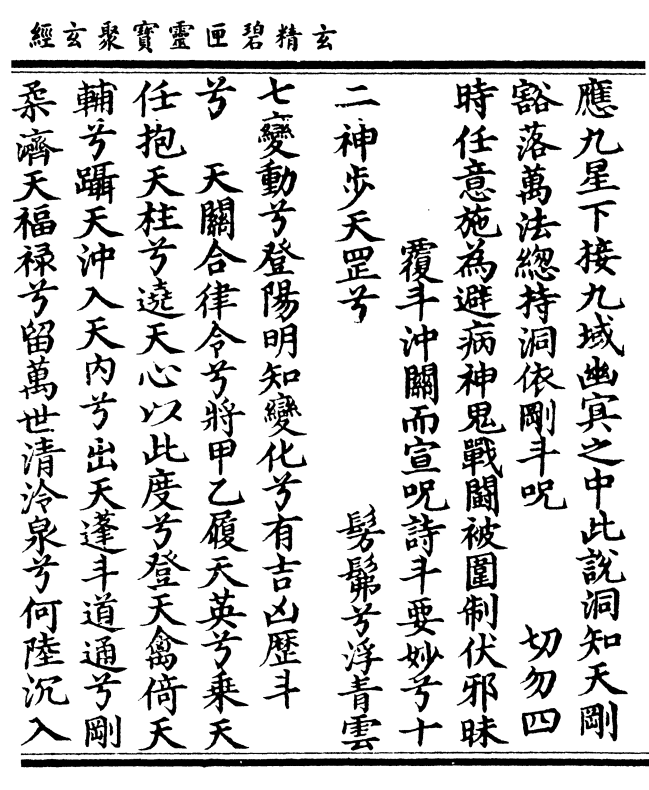 玄精碧匣靈寶聚玄經
應九星下接九域幽冥之中此說洞知天剛
豁落萬法總持洞依剛斗呪　切勿四
時任意施為避病神鬼戰鬪被圍制伏邪昧
覆斗沖關而宣呪詩斗要妙兮十
二神步天罡兮　髣髴兮浮青雲
七變動兮登陽明知變化兮有吉凶歷斗
兮　天關合律令兮將甲乙履天英兮乗天
任抱天柱兮遶天心以此度兮登天禽倚天
輔兮躡天沖入天內兮出天蓬斗道通兮剛
柔濟天福禄兮留萬世清泠泉兮何陸沉入